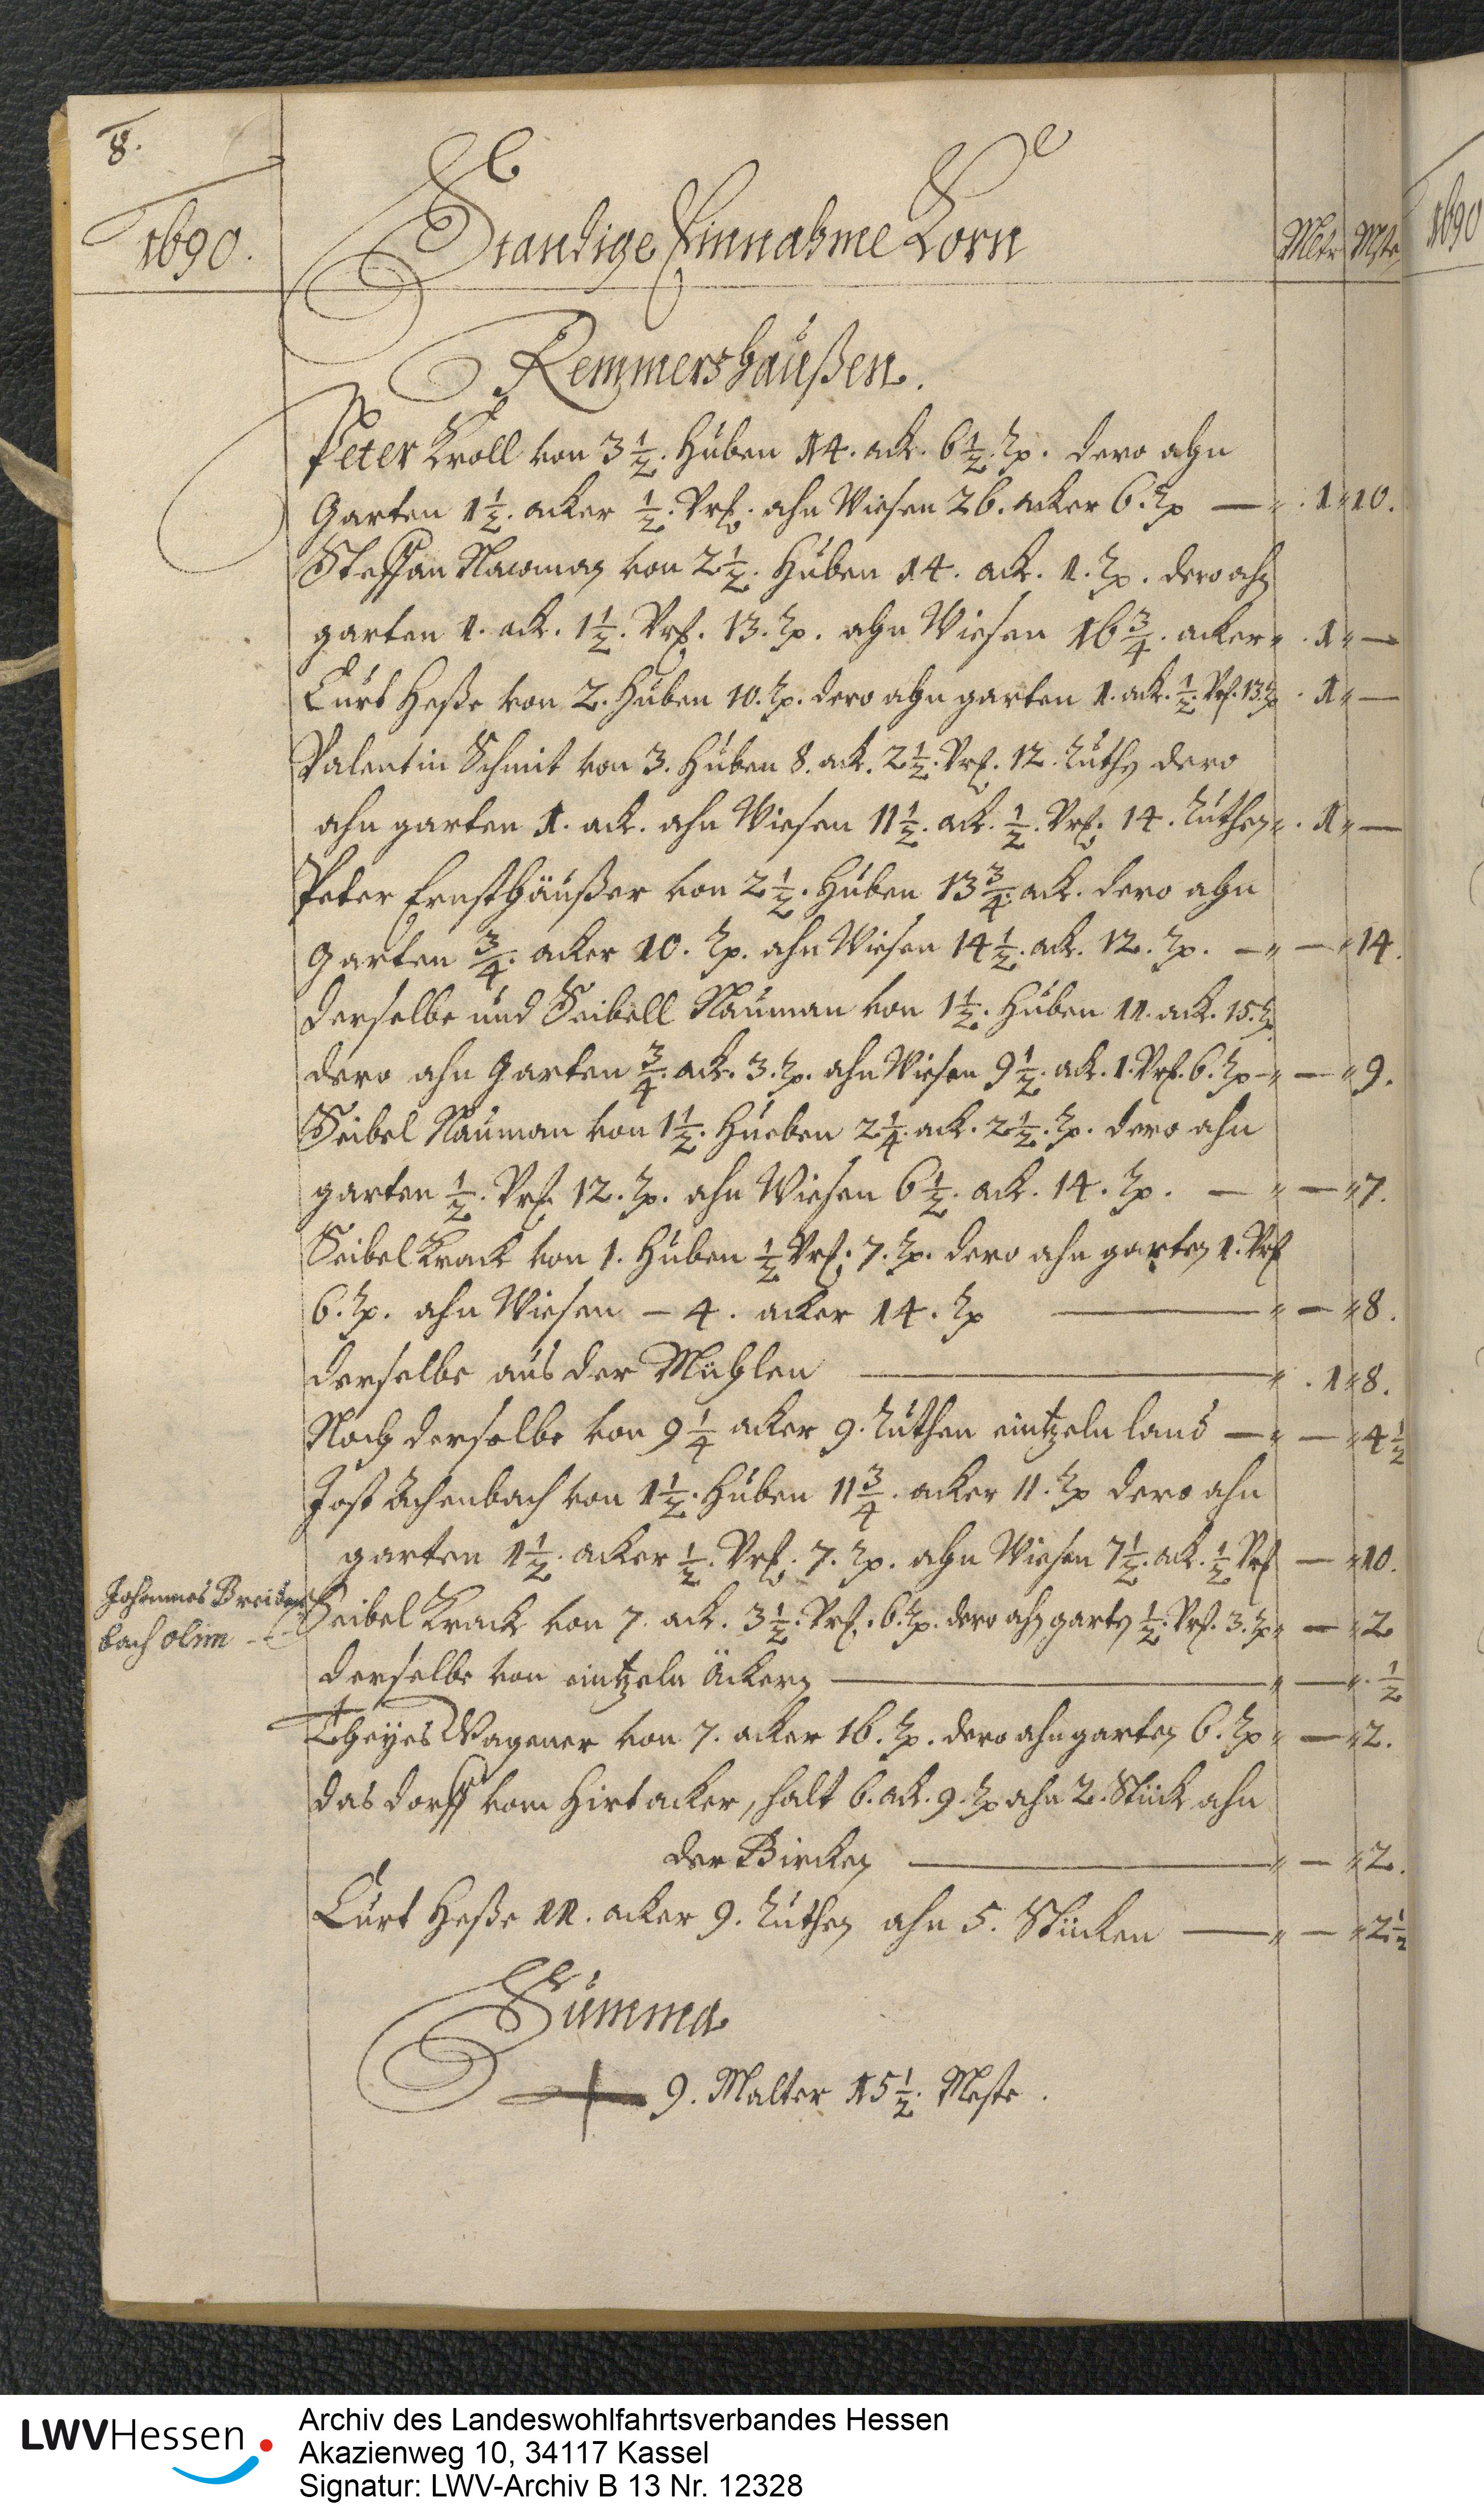 8.
1690.
Standige Einnahme Korn
Mltr Mste
1690
Remmershaußen.
Peter Kroll von 3 1/2. Huben 14. ack. 6 1/2. Rp. dero ahn
Garten 1 1/2. acker 1/2. Vrt. ahn Wiesen 26. acker 6. Rp — „ . 1 „ 10.
Steffan Nauman von 2 1/2. Huben 14. ack. 1. Rp. dero ahn
garten 1. ack. 1 1/2. Vrt. 13. Rp. ahn Wiesen 16 3/4. acker „ . 1 „ —
Curt Heße von 2. Huben 10. Rp. dero ahn garten 1. ack. 1/2. Vrt. 13. Rp . 1 „ —
Valentin Schmit von 3. Huben 8. ack. 2 1/2. Vrt. 12. Ruthen dero
ahn garten 1. ack. ahn Wiesen 11 1/2. ack. 1/2. Vrt. 14. Ruthen „ . 1 „ —
Peter Ernsthäußer von 2 1/2. Huben 13 3/4. ack. dero ahn
Garten 3/4. acker 10. Rp. ahn Wiesen 14 1/2. ack. 12. Rp. — „ — „ 14.
derselbe und Seibell Nauman von 1 1/2. Huben 11. ack. 15. Rp
dero ahn Garten 3/4. ack. 3. Rp. ahn Wiesen 9 1/2. ack. 1. Vrt. 6. Rp — „ — „ 9.
Seibel Nauman von 1 1/2. Hueben 2 1/4. ack. 2 1/2. Rp. dero ahn
garten 1/2. Vrt. 12. Rp. ahn Wiesen 6 1/2. ack. 14. Rp. — „ — „ 7.
Seibel Krack von 1. Huben 1/2 Vrt. 7. Rp. dero ahn garten 1. Vrt
6. Rp. ahn Wiesen — 4. acker 14. Rp — „ — „ 8.
derselbe aus der Mühlen — „ . 1 „ 8.
Noch derselbe von 9 1/4 acker 9. Ruthen eintzeln land — „ — „ 4 1/2
Jost Achenbach von 1 1/2. Huben 11 3/4. acker 11. Rp dero ahn
garten 1 1/2. acker 1/2. Vrt. 7. Rp. ahn Wiesen 7 1/2. ack. 1/2 Vrt — „ 10.
Johannes Breiden
bach olim
Seibel Krack von 7. ack. 3 1/2. Vrt. 6. Rp. dero ahn garten 1/2. Vrt. 3. Rp „ — „ 2
derselbe von eintzeln Äckern — „ — „ . 1/2
Theyes Wagener von 7. acker 16. Rp. dero ahn garten 6. Rp „ — „ 2.
das dorff vom Hirt acker, halt 6. ack. 9. Rp ahn 2. Stück ahn
der Bircken — „ — „ 2.
Curt Heße 11. acker 9. Ruthen ahn 5. Stücken — „ — „ 2 1/2
Summa
9. Malter 15 1/2. Meste.
LWVHessen
Archiv des Landeswohlfahrtsverbandes Hessen
Akazienweg 10, 34117 Kassel
Signatur: LWV-Archiv B 13 Nr. 12328